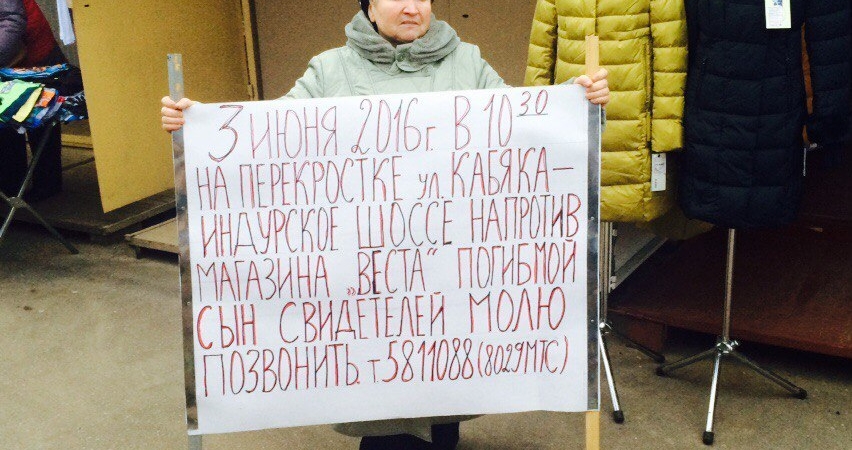 3 ИЮНЯ 2016г. В 10 30
НА ПЕРЕКРОСТКЕ ул. КАБЯКА-
ИНДУРСКОЕ ШОССЕ НАПРОТИВ
МАГАЗИНА „ВЕСТА“ ПОГИБ МОЙ
СЫН СВИДЕТЕЛЕЙ МОЛЮ
ПОЗВОНИТЬ. т 5811088 (8029 МТС)